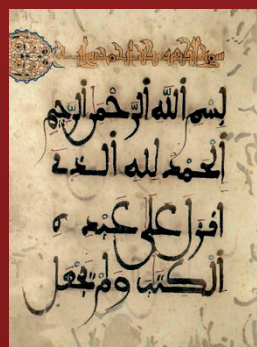 بسم ٱلله ٱلرحمن ٱلرحيم
ٱلحمد لله ٱلذے
أنزل على عبده
ٱلكتب ولم يجعل